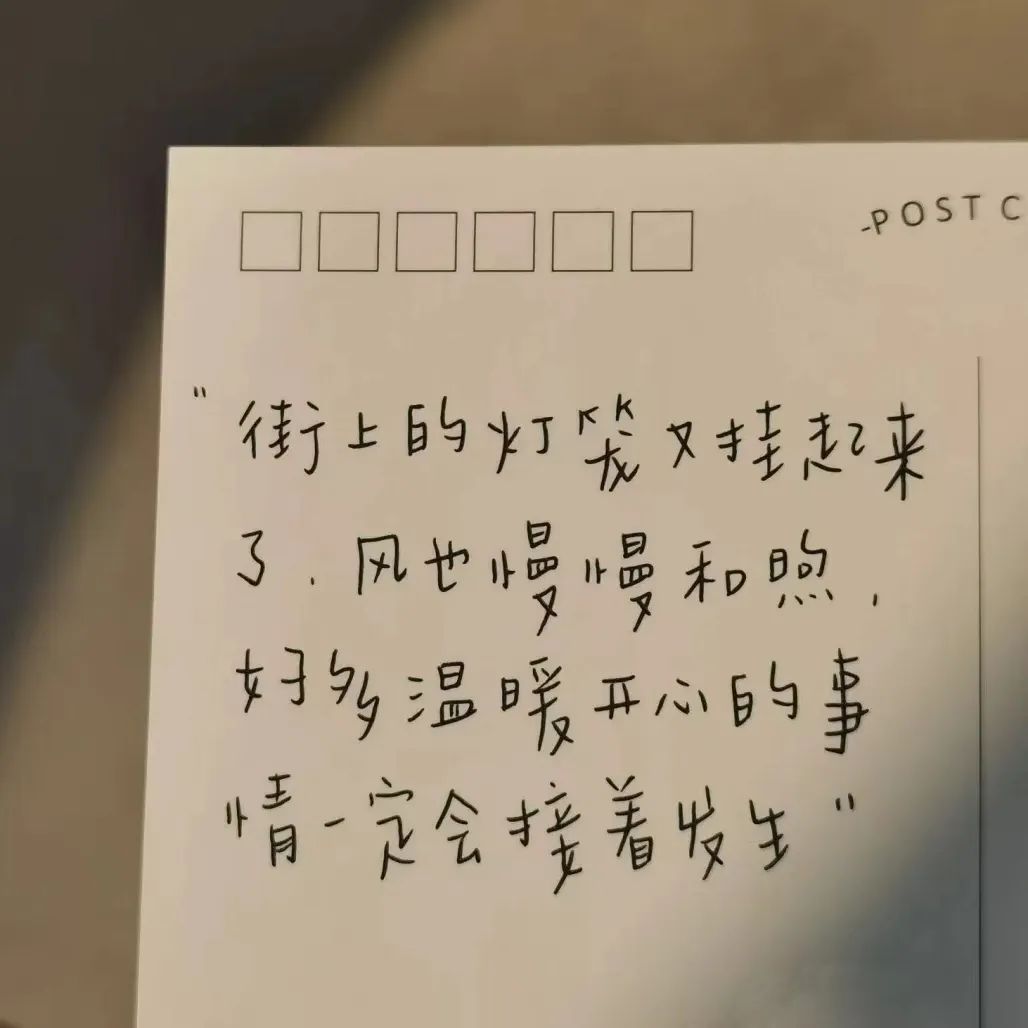 -POST C
"街上的灯笼又挂起来
了.风也慢慢和煦,
好多温暖开心的事
情一定会接着发生"